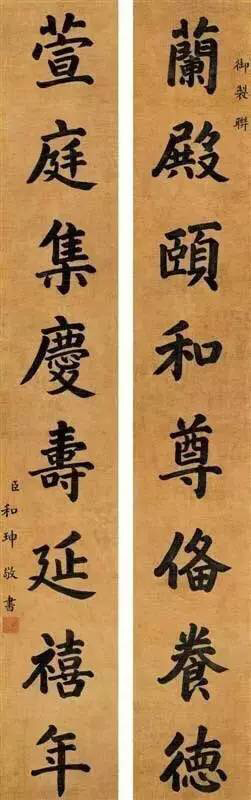 御製聯
蘭殿頤和尊備養德
萱庭集慶壽延禧年
臣和珅敬書